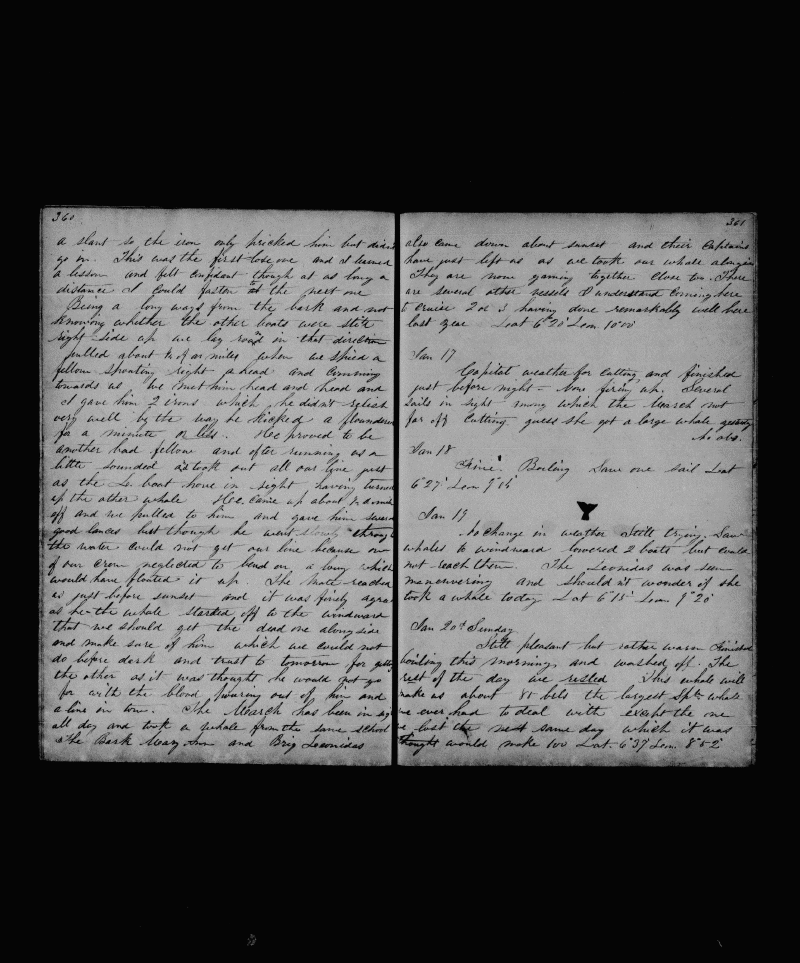 360
a slant so the iron only pricked him but didn't
go in. This was the first lose one and I learned
a lesson and felt confident though at as long a
distance I could fasten at the next one
Being a long ways from the bark and not
knowing whether the other boats were still
right side up we lay round in that direction
pulled about ½ of a miles when we spied a
fellow spouting right ahead and coming
towards us. We met him head and head and
I gave him 2 irons which he didn't relish
very well by the way he kicked & floundered
for a minute or less. He proved to be
another bad fellow and after running us a
little sounded & took out all our line just
as the boat hove in sight having turned
up the other whale He came up about ½ a mile
off and we pulled to him and gave him several
good lances but though he went slowly through
the water could not get our line because one
of our crew neglected to bend on a buoy which
would have floated it up. The Mate reached
us just before sunset and it was finely agreed
as the whale started off to the windward
that we should get the dead one along side
and make sure of him which we could not
do before dark and trust to tomorrow for getting
the other as it was thought he would not go
far with the blood pouring out of him and
a line in tow. The March has been in
all day and took a whale from the same school
The Bark Mary Ann and Brig Leonidas
361
also came down about sunset and their Captains
have just left us as we took our whale alongside
They are now gaming together close to. There
are several other vessels I understand coming here
to cruise 2 or 3 having done remarkably well here
last year Lat 6°20' Lon 10°00'
Jan 17
Capital weather for cutting and finished
just before night — Now firing up. Several
sails in sight among which the March not
far off cutting guess she got a large whale yesterday
No obs.
Jan 18
Fine. Boiling Saw one sail Lat
6°27' Lon 9°15'
Jan 19
No change in weather Still trying. Saw
whales to windward lowered 2 boats but could
not reach them. The Leonidas was seen
maneuvering and should n't wonder if she
took a whale today Lat 6°15' Lon 9°20'
Jan 20th Sunday
Still pleasant but rather warm Finished
boiling this morning, and washed off. The
rest of the day we rested This whale will
make us about 80 bbls the largest Sp whale
we ever had to deal with except the one
we lost the same day which it was
thought would make 100 Lat. 6°37' Lon. 8°52'